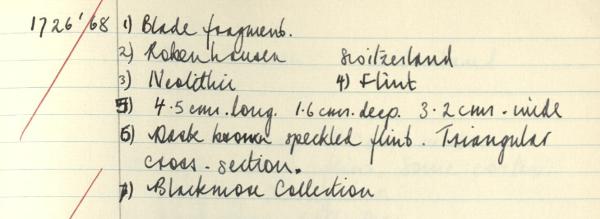 1726'68 1) Blade fragment.
2) Robenhausen Switzerland
3) Neolithic 4) Flint
5) 4.5 cms. long. 1.6 cms. deep. 3.2 cms. wide
6) Dark brown speckled flint. Triangular
cross-section.
7) Blackmore Collection